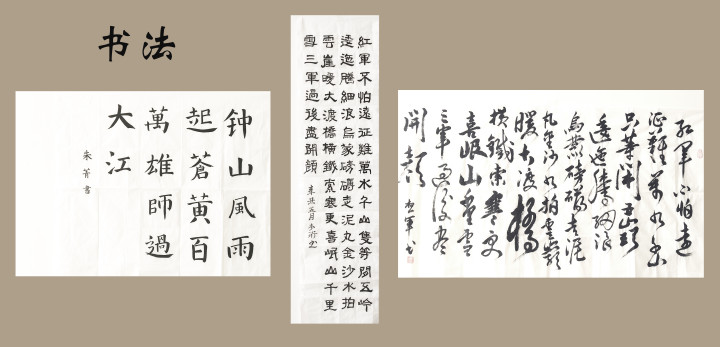 书法
钟山風雨
起蒼黄百
萬雄師過
大江
朱菁書
紅軍不怕遠征難萬水千山隻等閒五岭
逶迤騰細浪烏蒙磅礴走泥丸金沙水拍
雲崖暖大渡橋横鐵索寒更喜岷山千里
雪三軍過後盡開顏
红軍不怕遠
征難萬水千山
只等閒五嶺
逶迤騰細浪
烏蒙磅礴走泥
丸金沙水拍雲崖
暖大渡橋
横鐵索寒更
喜岷山千里雪
三軍過後盡
開顏